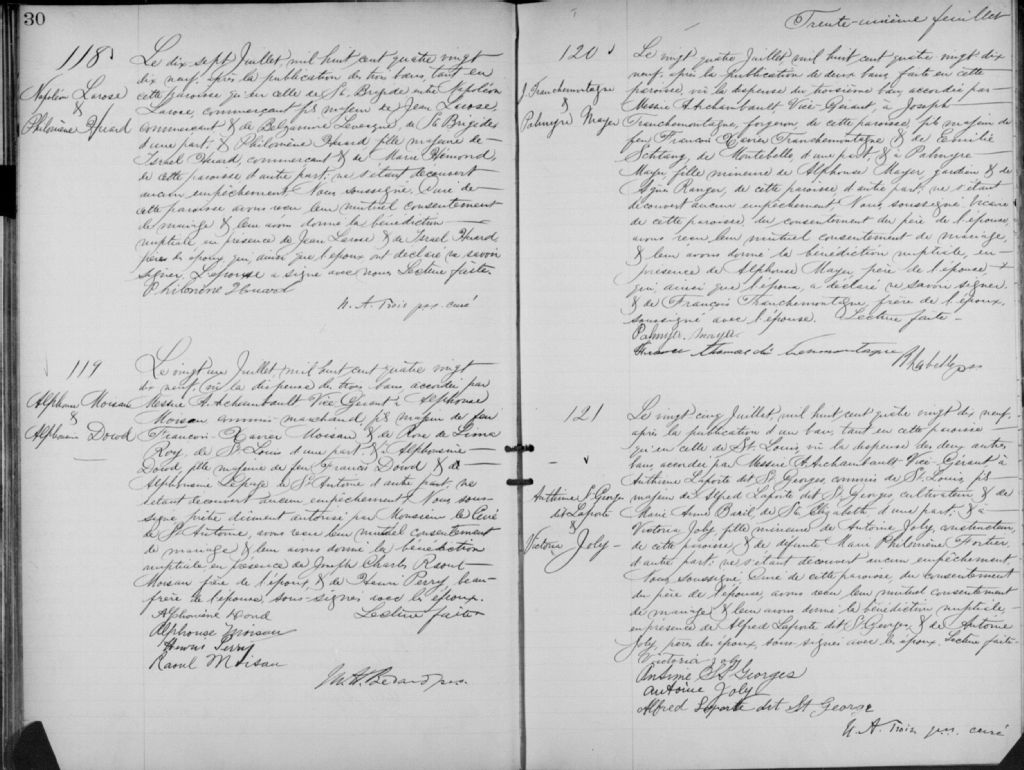 30
118
Napoléon Larose
&
Philomène Huard
Le dix sept Juillet, mil huit cent quatre vingt
dix neuf, après la publication des trois bans, tant en
cette paroisse qu'en celle de Ste Brigide entre Napoléon
Larose, commerçant fils majeur de Jean Larose,
commerçant & de Levesque, de Ste Brigide
d'une part, & Philomène Huard fille majeure de
Israel Huard, commerçant & de Marie Hemond,
de cette paroisse d'autre part; ne s'étant découvert
aucun empêchement Nous soussigné, Curé de
cette paroisse avons reçu leur mutuel consentement
de mariage & leur avons donné la bénédiction
nuptiale en présence de Jean Larose & de Israel Huard,
pères des époux qui, ainsi que l'époux ont déclaré ne savoir
signer. L'épouse a signé avec nous Lecture faite
Philomène Huard
curé
119
Alphonse Moisan
&
Alphonsine Dowd
Le vingt un Juillet mil huit cent quatre vingt
dix neuf, vû la dispense de trois bans accordée par
Messire A. Archambault Vice Gérant à Alphonse
Moisan commis marchand, fils majeur de feu
François-Xavier Moisan, & de Rose de Lima
Roy, de St Louis d'une part & Alphonsine
Dowd, fille majeure de feu Francis Dowd & de
Alphonsine Lepage de St Antoine d'autre part; ne
s'étant découvert aucun empêchement. Nous sous-
signé, prêtre dûment autorisé par Monsieur le Curé
de St Antoine, avons reçu leur mutuel consentement
de mariage & leur avons donné la bénédiction
nuptiale en présence de Joseph Charles Raoul
Moisan frère de l'époux, & de Henri Perry, beau-
frère de l'épouse, sous-signés avec les époux.
Alphonsine Dowd Lecture faite
Alphonse Moisan
Henri Perry
Raoul Moisan
Bedard ptre
Trente-unième feuillet
120
J. Franchemontagne
&
Palmyre Mayer
Le vingt quatre Juillet mil huit cent quatre vingt dix
neuf, après la publication de deux bans, faite en cette
paroisse, vû la dispense du troisième ban, accordée par
Messire A. Archambault Vice-Gérant, à Joseph
Franchemontagne, forgeron de cette paroisse, fils majeur de
feu François Xavier Franchemontagne & de Emilie
de Montebello, d'une part; & à Palmyre
Mayer, fille mineure de Alphonse Mayer, gardien & de
Ranger, de cette paroisse d'autre part; ne s'étant
découvert aucun empêchement. Nous, soussigné Vicaire
de cette paroisse, du consentement du père de l'épouse,
avons reçu leur mutuel consentement de mariage,
& leur avons donné la bénédiction nuptiale, en
présence de Alphonse Mayer, père de l'épouse,
qui, ainsi que l'époux, a déclaré ne savoir signer.
& de François Franchemontagne, frère de l'époux,
soussigné avec l'épouse. Lecture faite
Palmyre Mayer
121
Anthime St Georges
dit Laporte
&
Victoria Joly
Le vingt cinq Juillet, mil huit cent quatre vingt dix neuf,
après la publication d'un ban, tant en cette paroisse
qu'en celle de St. Louis, vû la dispense des deux autres
bans, accordée par Messire A. Archambault Vice-Gérant à
Anthime Laporte dit St. Georges, commis de St. Louis, fils
majeur de Alfred Laporte dit St. Georges cultivateur & de
Marie Anne Baril de Ste Elizabeth d'une part, & à
Victoria Joly fille mineure de Antoine Joly, constructeur,
de cette paroisse, & de défunte Marie Philomène Fortier,
d'autre part; ne s'étant découvert aucun empêchement
Nous soussigné Curé de cette paroisse, du consentement
du père de l'épouse, avons reçu leur mutuel consentement
de mariage, & leur avons donné la bénédiction nuptiale,
en présence de Alfred Laporte dit St. Georges, & de Antoine
Joly, pères des époux, sous-signés avec les époux. Lecture faite
Victoria Joly
Antime St Georges
Antoine Joly
Alfred Laporte dit St George
curé